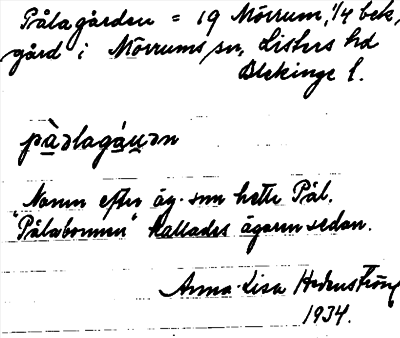 Pålagården = 19 Mörrum, 1/4 bek.
gård i Mörrums sn, Listers hd
Blekinge l.
pàəlagáu̯ən
Namn efter äg. som hette Pål.
"Pålabonnen" kallades ägaren sedan.
Anna-Lisa Hedenström
1934.